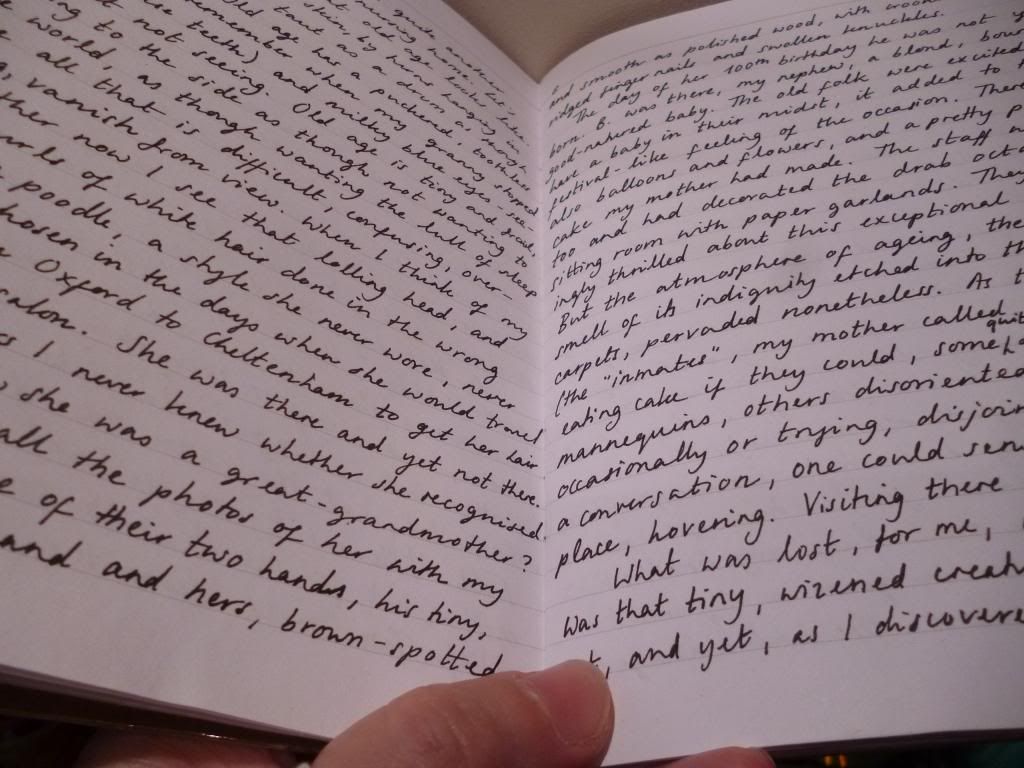 guage, another
not old age for me
Old age has
remember when my granny slipped
use teeth) and milky blue eyes, see-
d not seeing. Old age is tiny and frail,
to the side as though not wanting to
world, as though wanting the lull of sleep
all that is difficult, confusing, over-
vanish from view. When I think of my
ther now I see that lolling head, and
urls of white hair done in the wrong
poodle, a style she never wore, never
hosen in the days when she would travel
Oxford to Cheltenham to get her hair
salon. She was there and yet not there.
I never knew whether she recognised
she was a great-grandmother?
all the photos of her with my
of their two hands, his tiny,
and and hers, brown-spotted
and smooth as polished wood, with
ridged finger nails and swollen knuckles.
The day of her 100th birthday he was not
born. B. was there, my nephew, a blond,
good-natured baby. The old folk were excited
have a baby in their midst, it added to
festival-like feeling of the occasion. There
also balloons and flowers, and a pretty
cake my mother had made. The staff
too and had decorated the drab
sitting room with paper garlands. They
ingly thrilled about this exceptional
But the atmosphere of ageing, the
smell of its indignity etched into
carpets, pervaded nonetheless. As
(the "inmates", my mother called
eating cake if they could, some quit
mannequins, others disoriented
occasionally or trying, disjoin
a conversation, one could sen
place, hovering. Visiting there
What was lost, for me,
was that tiny, wizened creatu
, and yet, as I discovere